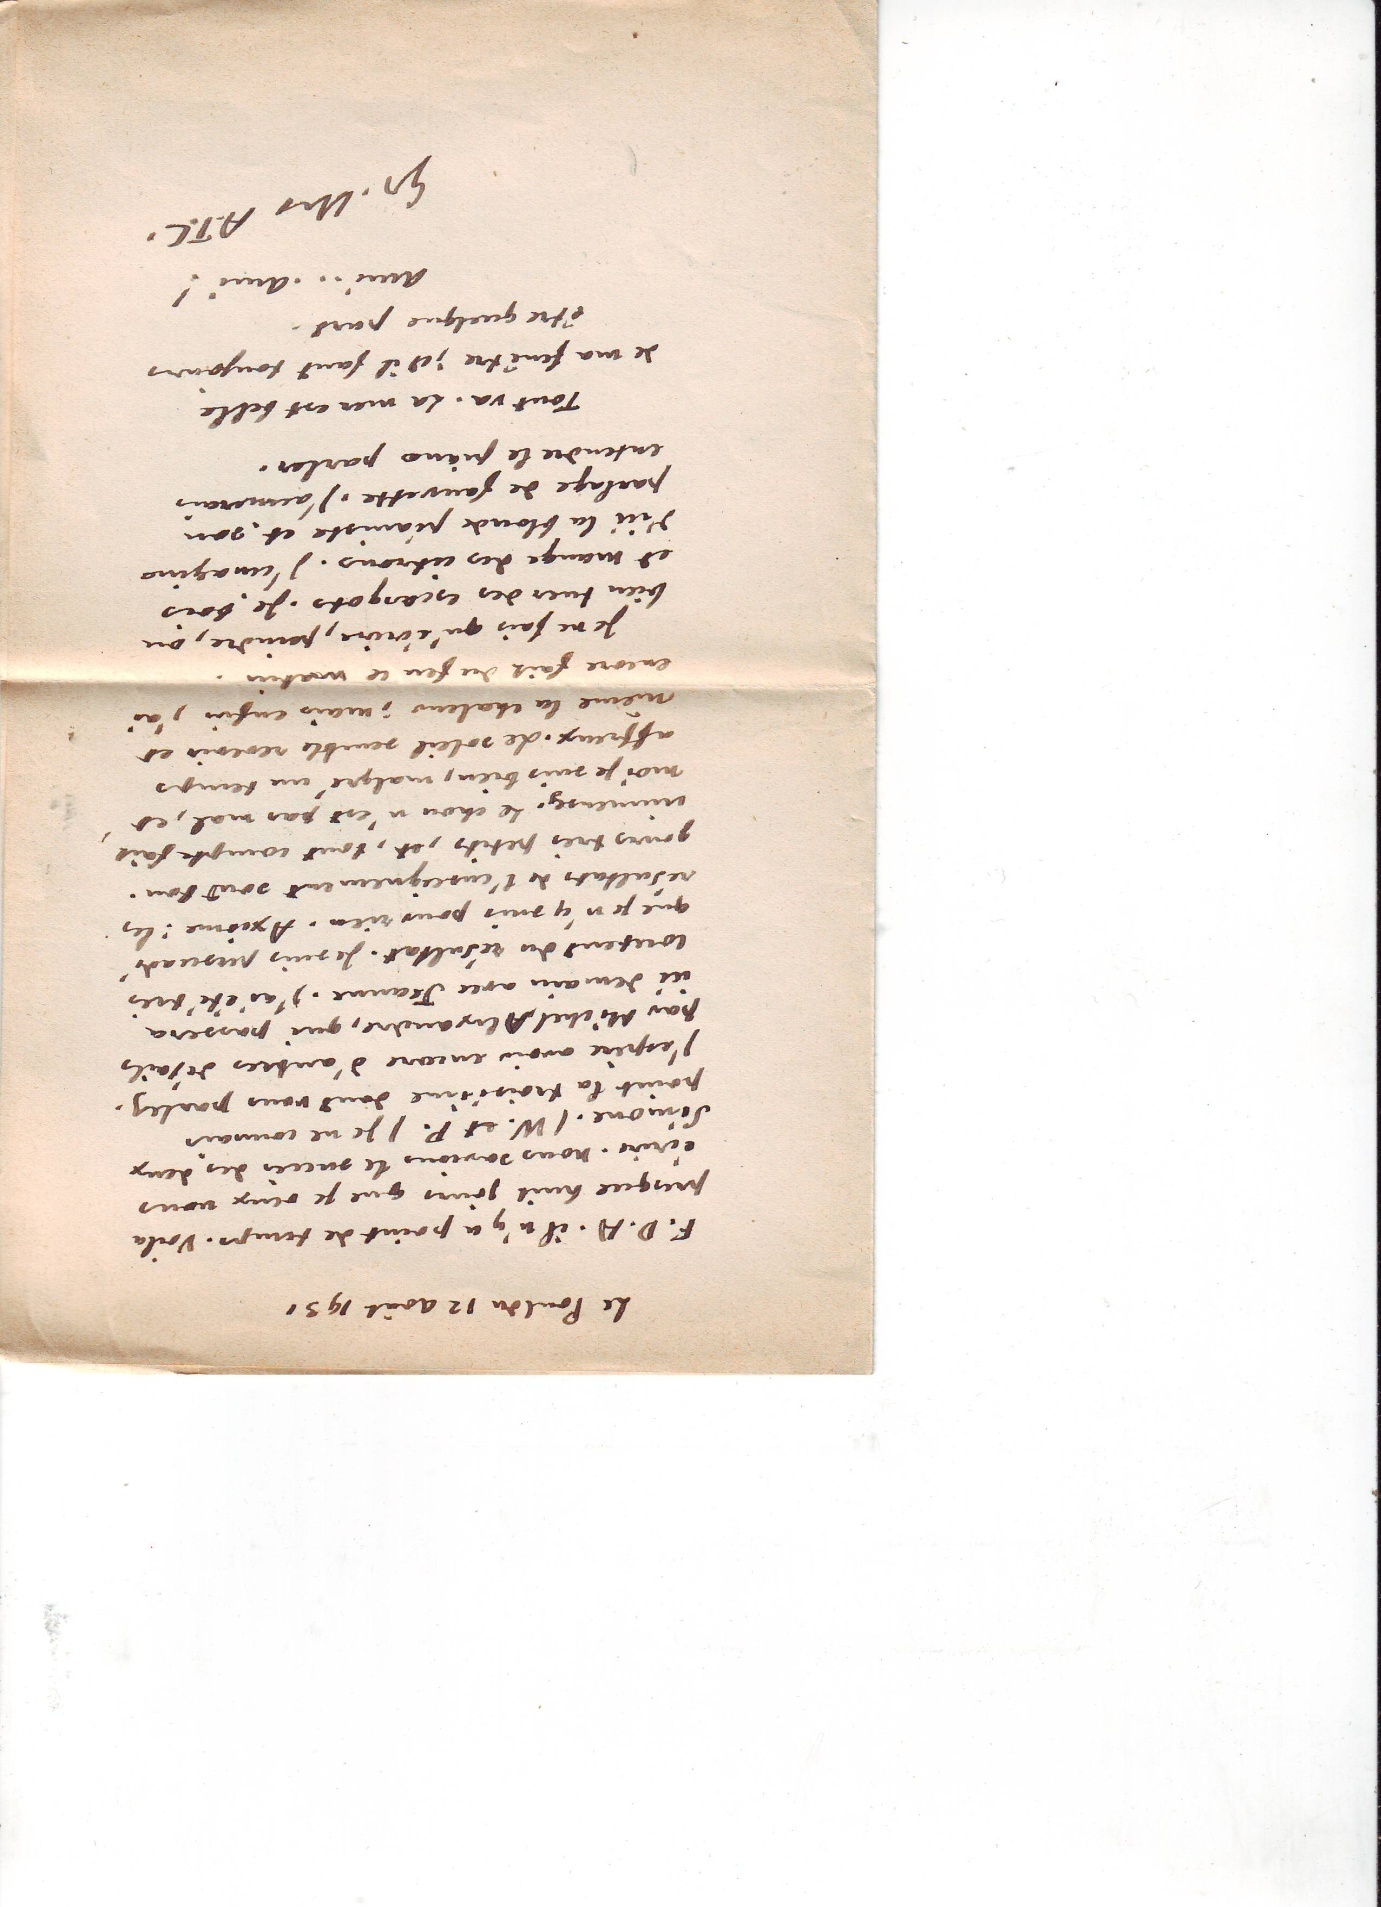 Le Pouldu 12 août 1931
F. D. A. il n'y a point de temps. Voilà
presque huit jours que je veux vous
écrire. Nous savions le succès des deux
Simone. (W. et P.) Je ne connais
point la troisième dont vous parlez.
J'espère avoir encore d'autres détails
par Michel Alexandre, qui passera
ici demain avec Jeanne. J'ai été très
content du résultat. Je suis persuadé
que je n'y suis pour rien. Axiome : les
résultats de l'enseignement sont bon.
jours très petits, et, tout compte fait
immenses. Le chou n'est pas mal, et
moi je suis bien, malgré un temps
affreux. Le soleil semble revenir et
même la chaleur ; mais enfin j'ai
encore fait du feu ce matin.
Je ne fais qu'écrire, peindre, ou
bien tuer des escargots. Je bois
et mange des citrons. J'imagine
d'ici la blonde pianiste et son
partage de fauvette. J'aimerais
entendre le piano parler.
Tout va. La mer est belle
de ma fenêtre ; et il faut toujours
être quelque part.
Ami... Ami !
A.T.C.